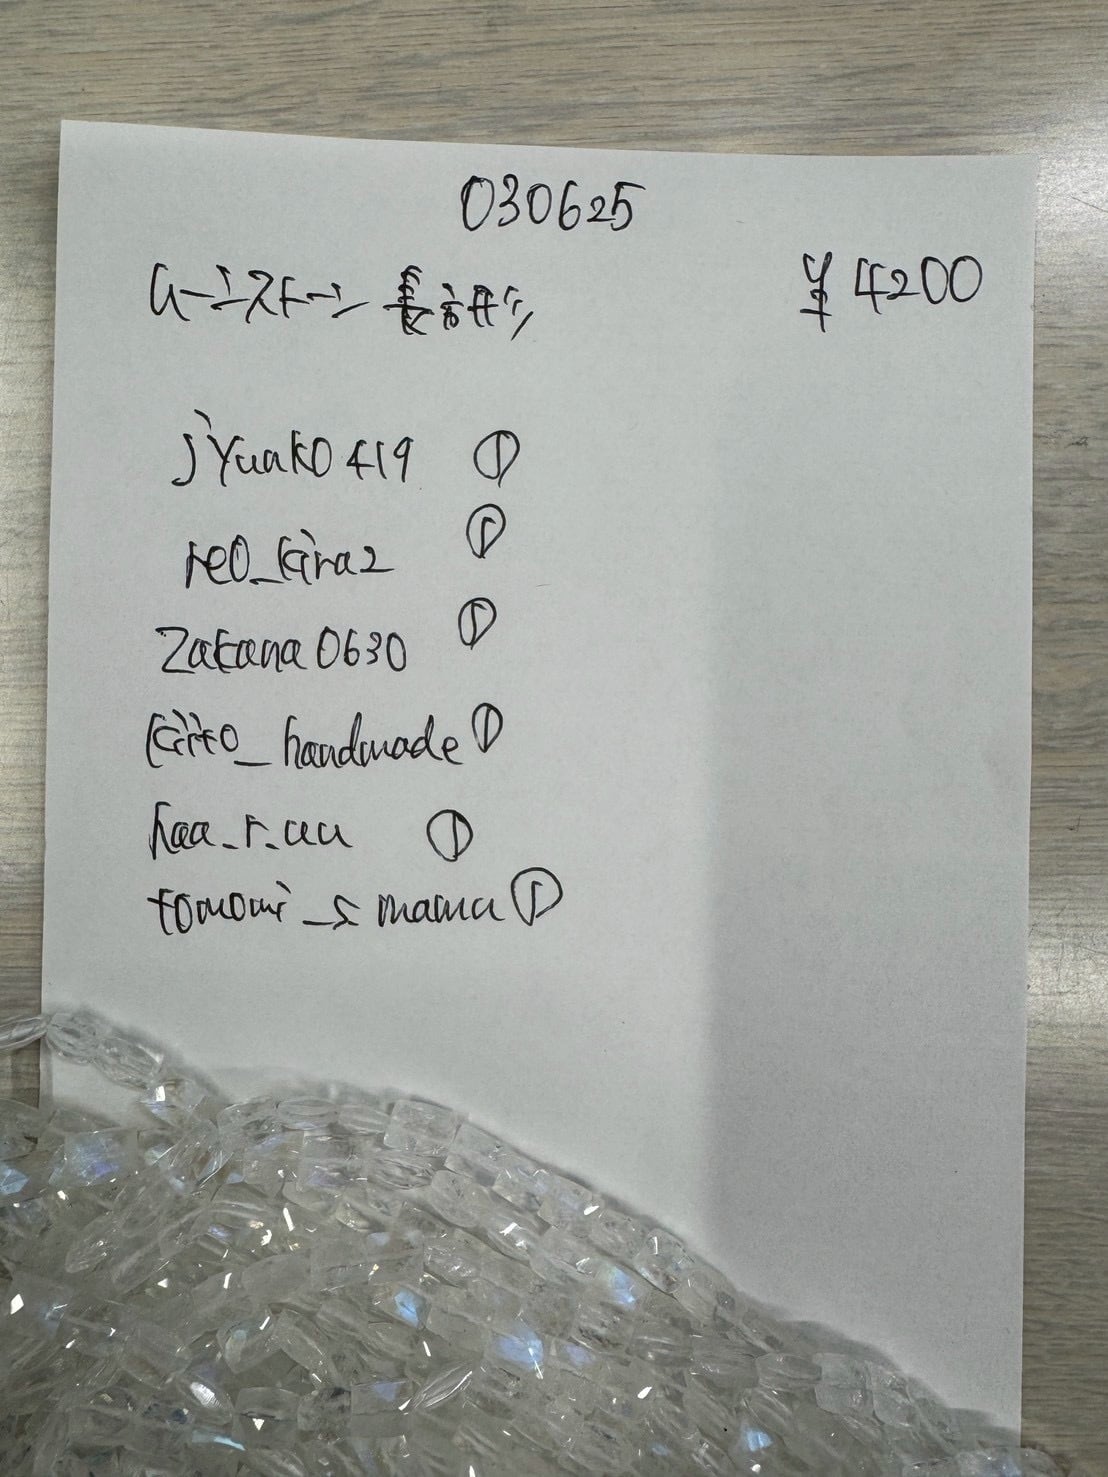 030625
ムーンストーン 長方形 ¥4200
jyuako419 ①
reo_kira2 ①
zakana0630 ①
kiito_handmade ①
haa_r_uu ①
tomomi_s mama ①